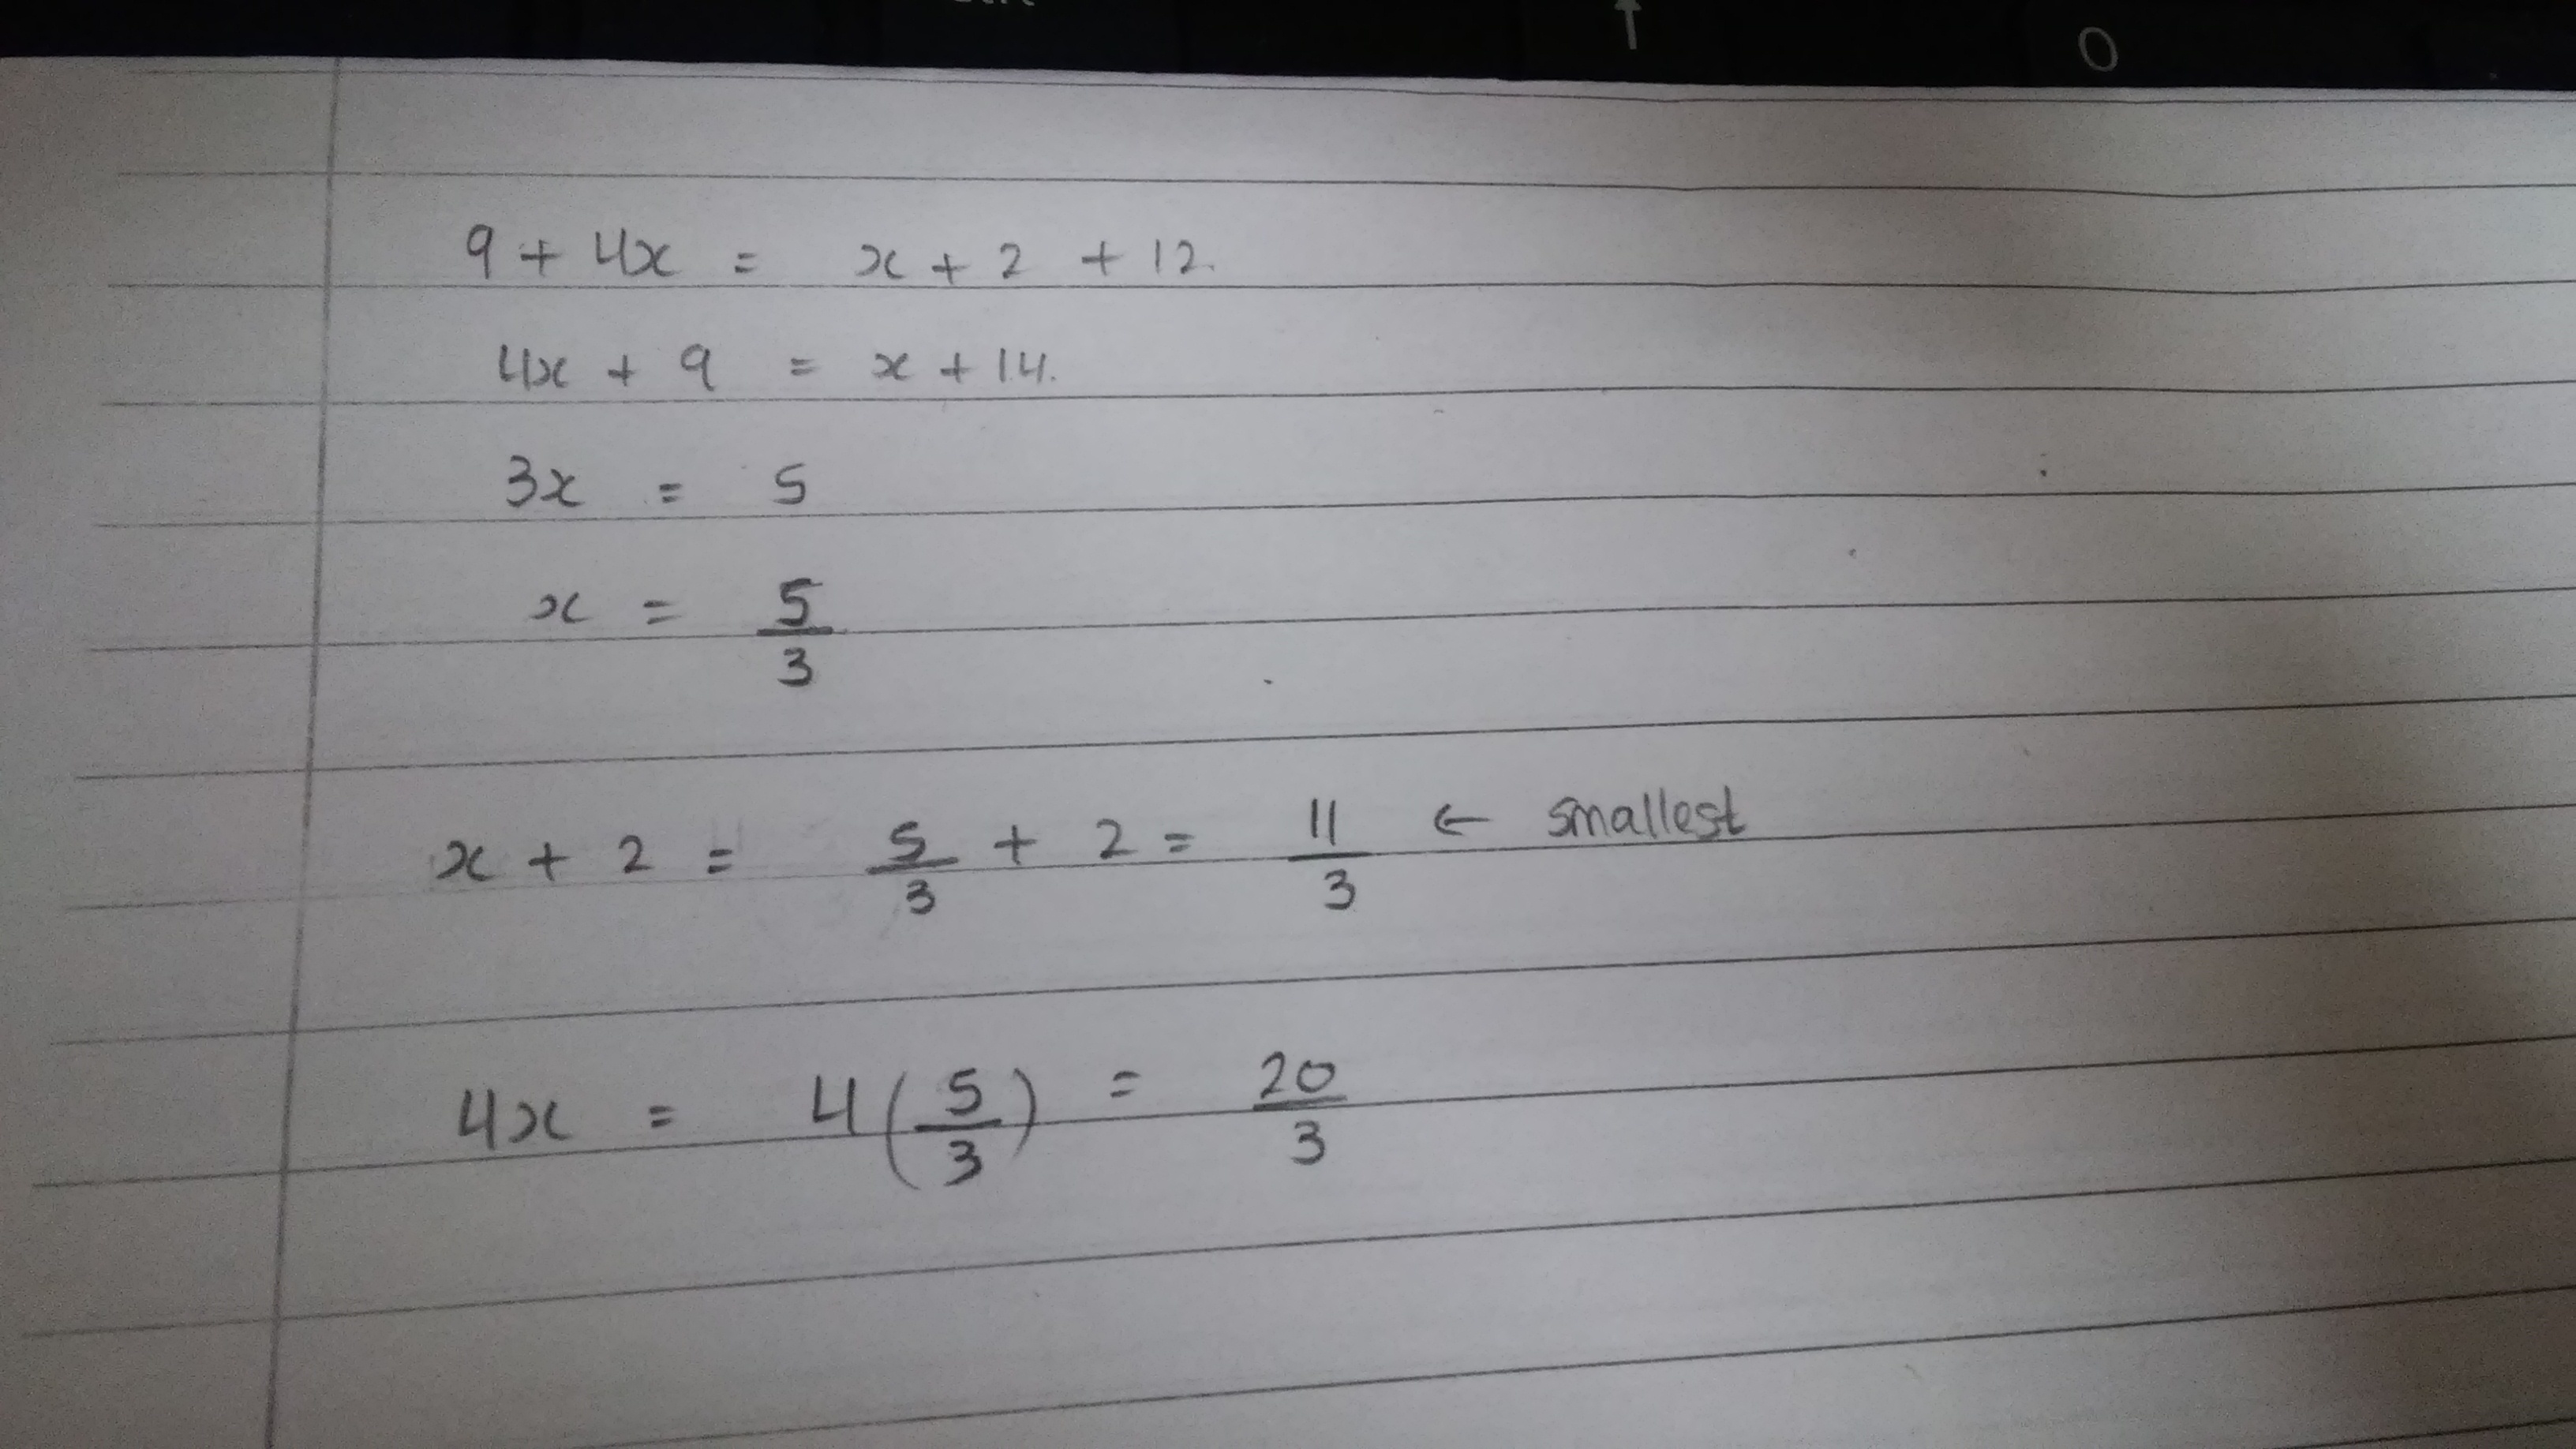 ↑ 0
9 + 4x = x + 2 + 12.
4x + 9 = x + 14.
3x = 5
x = 5/3
x + 2 = 5/3 + 2 = 11/3 ← smallest
4x = 4(5/3) = 20/3